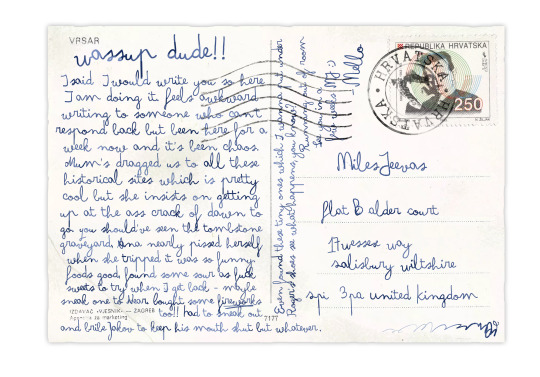 VRSAR
wassup dude!!
I said I would write you so here
I am doing it feels awkward
writing to someone who can't
respond back but been here for a
week now and it's been chaos.
Mum's dragged us to all these
historical sites which is pretty
cool but she insists on getting
up at the ass crack of dawn to
go you should've seen the tombstone
graveyard Ana nearly pissed herself
when she tripped it was so funny
foods good found some sour as fuck
sweets to try when I get back - maybe
sneak one to Mar bought some fireworks
IZDAVAČ «VJESNIK» — ZAGREB
too!! had to sneak out
Agencija za marketing
7177
and bribe Jakov to keep his mouth shut but whatever.
Even found these tiny ones which I wanna put under
Roger's shoes see what happens you know?
Running out of room
See you in a
few weeks
Mello
REPUBLIKA HRVATSKA
2.50
HRVATSKA · HRVATSKA
Miles Jeevas
flat B alder court
17 wessex way
salisbury wiltshire
sp1 3pa united kingdom